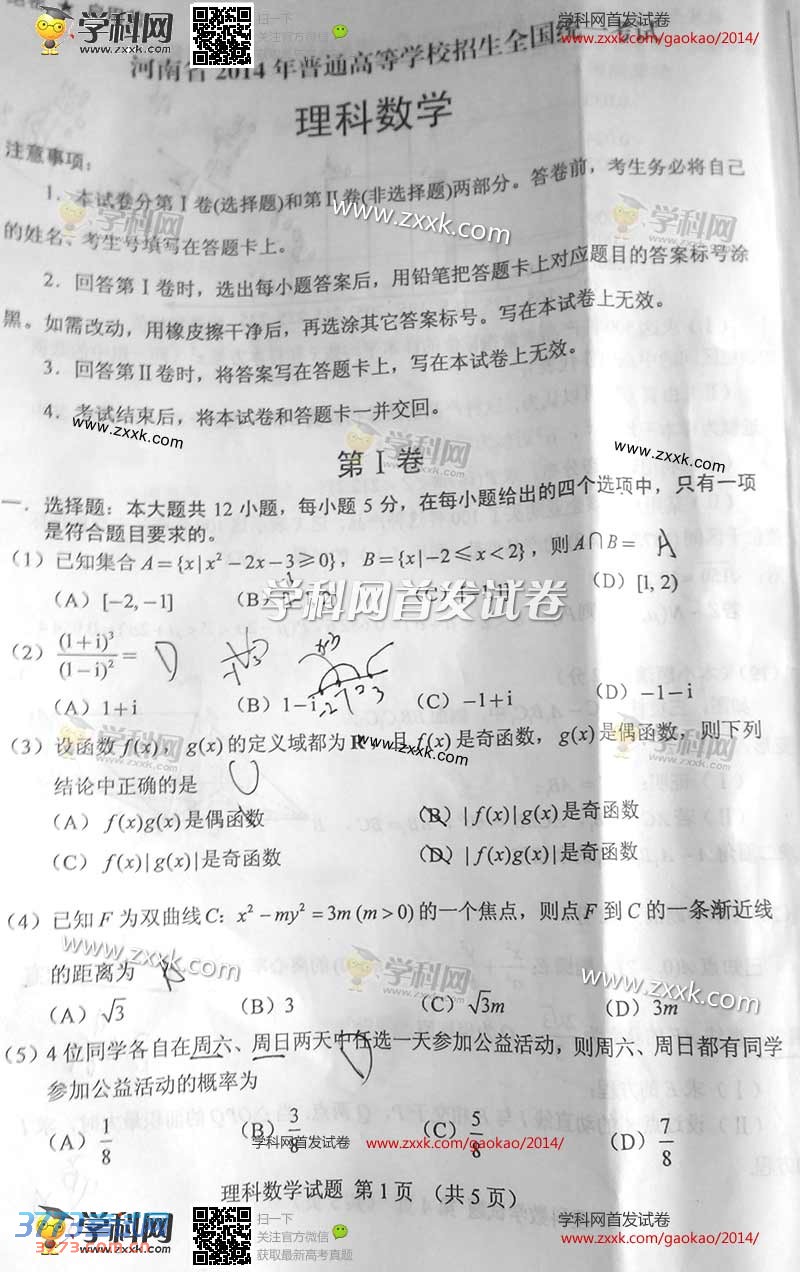 学科网
www.zxxk.com
扫一下
关注官方微信
学科网首发试卷
www.zxxk.com/gaokao/2014/
河南省 2014 年普通高等学校招生全国统一考试
理科数学
注意事项：
1．本试卷分第Ⅰ卷(选择题)和第Ⅱ卷(非选择题)两部分。答卷前，考生务必将自己
的姓名、考生号填写在答题卡上。
2．回答第Ⅰ卷时，选出每小题答案后，用铅笔把答题卡上对应题目的答案标号涂
黑。如需改动，用橡皮擦干净后，再选涂其它答案标号。写在本试卷上无效。
3．回答第Ⅱ卷时，将答案写在答题卡上，写在本试卷上无效。
4．考试结束后，将本试卷和答题卡一并交回。
第Ⅰ卷
一．选择题：本大题共 12 小题，每小题 5 分，在每小题给出的四个选项中，只有一项
是符合题目要求的。
(1) 已知集合 A={x|x²－2x－3≥0}，B={x|－2≤x<2}，则A∩B= A
(A) [－2,－1] (B) (C) (D) [1, 2)
学科网首发试卷
(2) (1+i)³/(1－i)² = D
(A) 1+i (B) 1－i (C) －1+i (D) －1－i
(3) 设函数 f(x)，g(x) 的定义域都为 R，且 f(x) 是奇函数，g(x) 是偶函数，则下列
结论中正确的是
(A) f(x)g(x) 是偶函数 (B) |f(x)|g(x) 是奇函数
(C) f(x)|g(x)| 是奇函数 (D) |f(x)g(x)| 是奇函数
(4) 已知 F 为双曲线 C：x²－my²=3m (m>0) 的一个焦点，则点 F 到 C 的一条渐近线
的距离为 A
(A) √3 (B) 3 (C) √3m (D) 3m
(5) 4 位同学各自在周六、周日两天中任选一天参加公益活动，则周六、周日都有同学
参加公益活动的概率为 D
(A) 1/8 (B) 3/8 (C) 5/8 (D) 7/8
学科网首发试卷 www.zxxk.com/gaokao/2014/
理科数学试题 第 1 页 （共 5 页）
学科网
www.zxxk.com
扫一下
关注官方微信
获取最新高考真题
学科网首发试卷
www.zxxk.com/gaokao/2014/